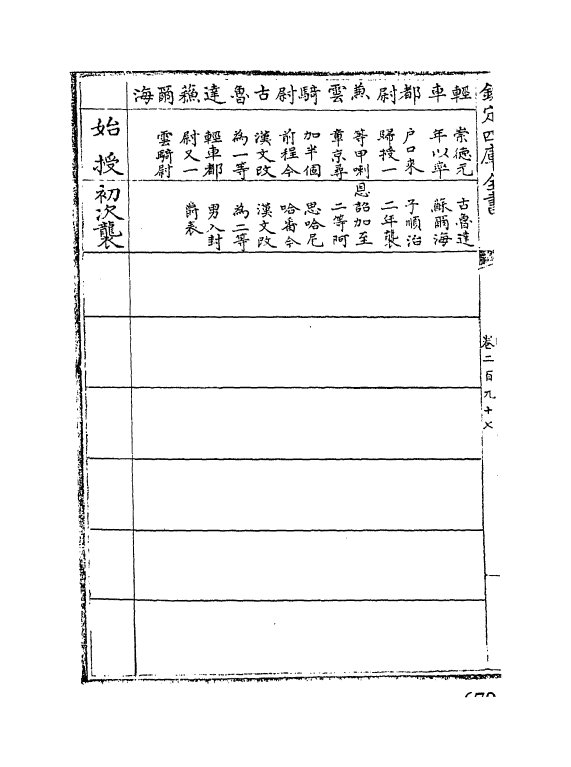 欽定四庫全書
卷二百九十七
輕車都尉兼雲騎尉古魯達蘓爾海
始授
崇德元
年以率
户口來
歸授一
等甲喇
章京尋
加半個
前程今
漢文改
為一等
輕車都
尉又一
雲騎尉
初次襲
古魯達
蘇爾海
子順治
二年襲
恩詔加至
二等阿
思哈尼
哈番今
漢文改
為二等
男入封
爵表